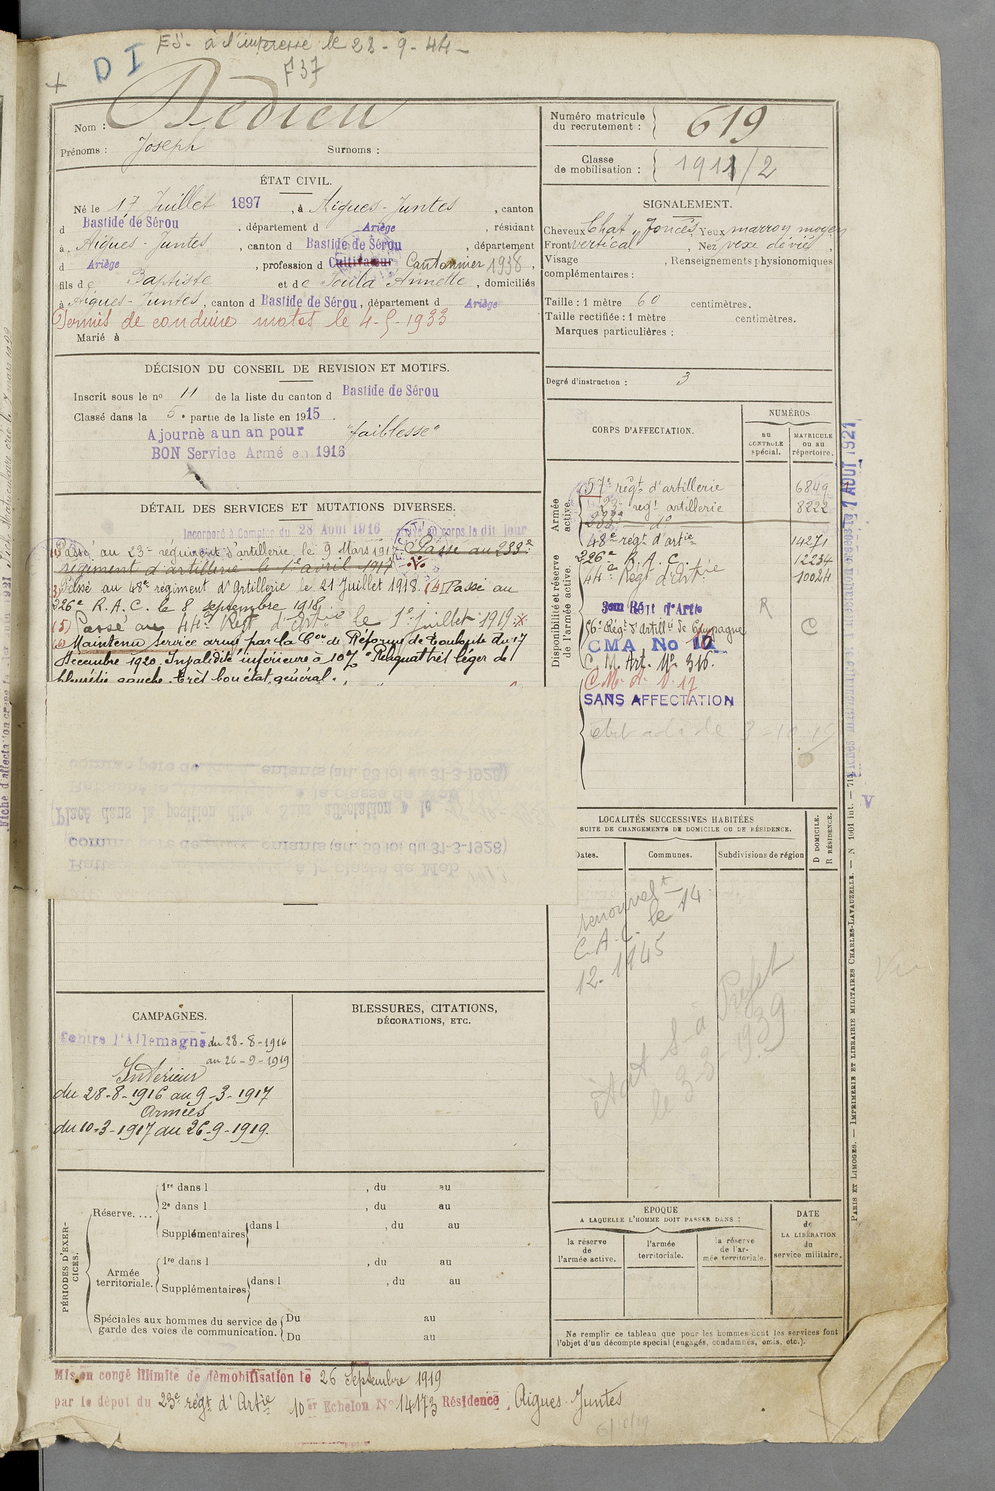 ES. à l'intéressé le 28-9-44
D I
F37
Nom : Dedieu
Prénoms : Joseph Surnoms :
Numéro matricule du recrutement : 619
Classe de mobilisation : 1911/2
ÉTAT CIVIL.
Né le 17 Juillet 1897, à Aigues-Juntes, canton
d Bastide de Sérou, département d Ariège, résidant
à Aigues-Juntes, canton d Bastide de Sérou, département
d Ariège, profession d Cultivateur Cantonnier 1938,
fils de Baptiste et de Soula Annette, domiciliés
à Aigues-Juntes, canton d Bastide de Sérou, département d Ariège
Permis de conduire motos le 4-5-1933
Marié à
SIGNALEMENT.
Cheveux Chat foncés Yeux marron moyen
Front vertical, Nez vexe dévié
Visage , Renseignements physionomiques
complémentaires :
Taille : 1 mètre 60 centimètres.
Taille rectifiée : 1 mètre centimètres.
Marques particulières :
Degré d'instruction : 3
DÉCISION DU CONSEIL DE REVISION ET MOTIFS.
Inscrit sous le nº 11 de la liste du canton d Bastide de Sérou
Classé dans la 5e partie de la liste en 1915.
Ajourné a un an pour "faiblesse"
BON Service Armé en 1916
DÉTAIL DES SERVICES ET MUTATIONS DIVERSES.
Incorporé à Compter du 28 Août 1916 au corps le dit jour
Passé au 23e régiment d'artillerie le 9 Mars 1917 Passé au 233e
régiment d'artillerie le 1er avril 1917
3) Passé au 48e régiment d'Artillerie le 21 Juillet 1918. (4) Passé au
226e R.A.C. le 8 septembre 1918.
(5) Passé au 44e Régt d'Artie le 1er juillet 1919.
Maintenu service armé par la Con de Réforme de Toulouse du 17
Décembre 1920. Invalidité inférieure à 10% Reliquat très léger de
pleurésie gauche. Très bon état général.
CORPS D'AFFECTATION.
NUMÉROS
AU CONTROLE spécial.
MATRICULE ou au répertoire.
Armée active.
57e régt d'artillerie 6849
23e régt artillerie 8222
48e régt d'artie 14271
Disponibilité et réserve de l'armée active.
226e R.A.C. 12234
44e Régt d'Artie 10024
3em Régt d'Artie R
56e Régt d'Artill de Campagne C
CMA No 10
C.M. Art. No 316.
C.M.A. No 17
SANS AFFECTATION
(Placé dans la position dite Sans affectation le
enfants (art. 58 loi du 31-3-1928)
à la classe de Mob
LOCALITÉS SUCCESSIVES HABITÉES
SUITE DE CHANGEMENTS DE DOMICILE OU DE RÉSIDENCE.
Dates. Communes. Subdivisions de région
D DOMICILE.
R RÉSIDENCE.
renouvelt
C.A.C. le 14
12-1945
Etat S-à Préfet
le 3-3-1939
CAMPAGNES.
Contre l'Allemagne du 28-8-1916
au 26-9-1919
Intérieur
du 28-8-1916 au 9-3-1917
Armées
du 10-3-1917 au 26-9-1919.
BLESSURES, CITATIONS,
DÉCORATIONS, ETC.
PÉRIODES D'EXERCICES.
Réserve....
1re dans l , du au
2e dans l , du au
Supplémentaires dans l , du au
Armée territoriale.
1re dans l , du au
Supplémentaires dans l , du au
Spéciales aux hommes du service de garde des voies de communication.
Du au
Du au
ÉPOQUE
A LAQUELLE L'HOMME DOIT PASSER DANS :
la réserve de l'armée active.
l'armée territoriale.
la réserve de l'armée territoriale.
DATE de LA LIBÉRATION du service militaire.
Ne remplir ce tableau que pour les hommes dont les services font
l'objet d'un décompte spécial (engagés, condamnés, omis, etc.).
Mis en congé illimité de démobilisation le 26 Septembre 1919
par le dépot du 23e régt d'Artie 10er Echelon No 14173 Résidence, Aigues-Juntes
PARIS ET LIMOGES. — IMPRIMERIE ET LIBRAIRIE MILITAIRES CHARLES-LAVAUZELLE. — N 1001 int.